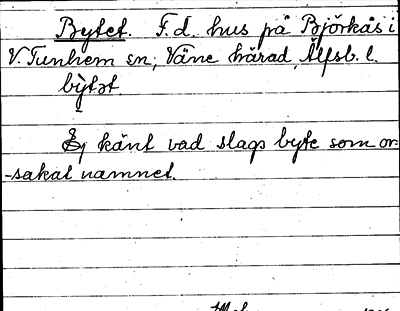 Bytet. F.d. hus på Björkås i
V. Tunhem sn, Väne härad, Älfsb. l.
bỳtət
Ej känt vad slags byte som or-
-sakat namnet.